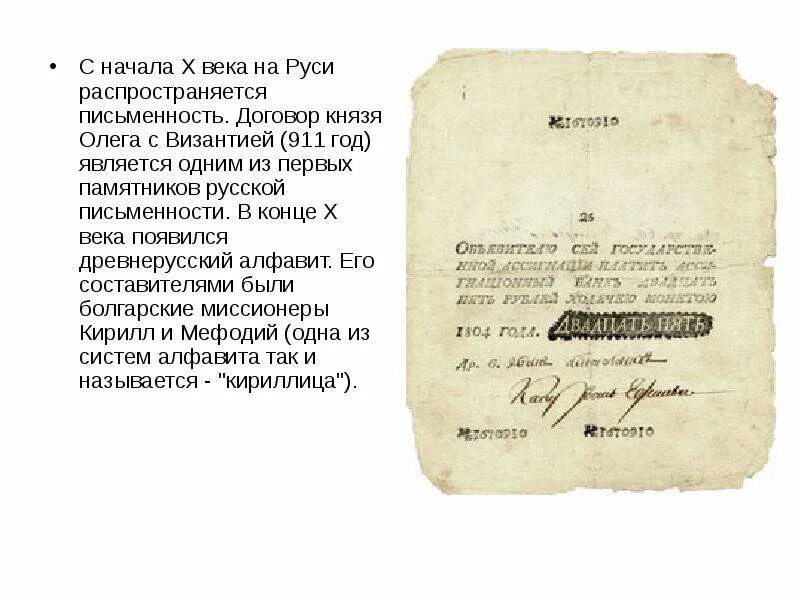 • С начала X века на Руси
распространяется
письменность. Договор князя
Олега с Византией (911 год)
является одним из первых
памятников русской
письменности. В конце X
века появился
древнерусский алфавит. Его
составителями были
болгарские миссионеры
Кирилл и Мефодий (одна из
систем алфавита так и
называется - "кириллица").
№1670910
25
Объявителю сей государстве-
нной ассигнаціи платитъ асси-
гнаціонный банкъ двадцать
пять рублей ходячею монетою
1804 года. Двадцать пять
№1670910 №1670910